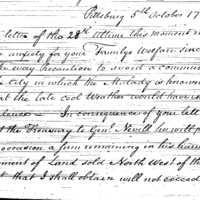 Pittsburg 5th October 17
letter of the 28th ultimo this moment r
anxiety for your Family's Welfare sinc
way Precaution to avoid a commun
city in which the Malady is known
that the late cool Weather would have
In consequence of your lett
the Treasury to Genl Nevill he will p
occasion a sum remaining in his han
ment of Land sold North West of the
that I shall obtain will not exceed